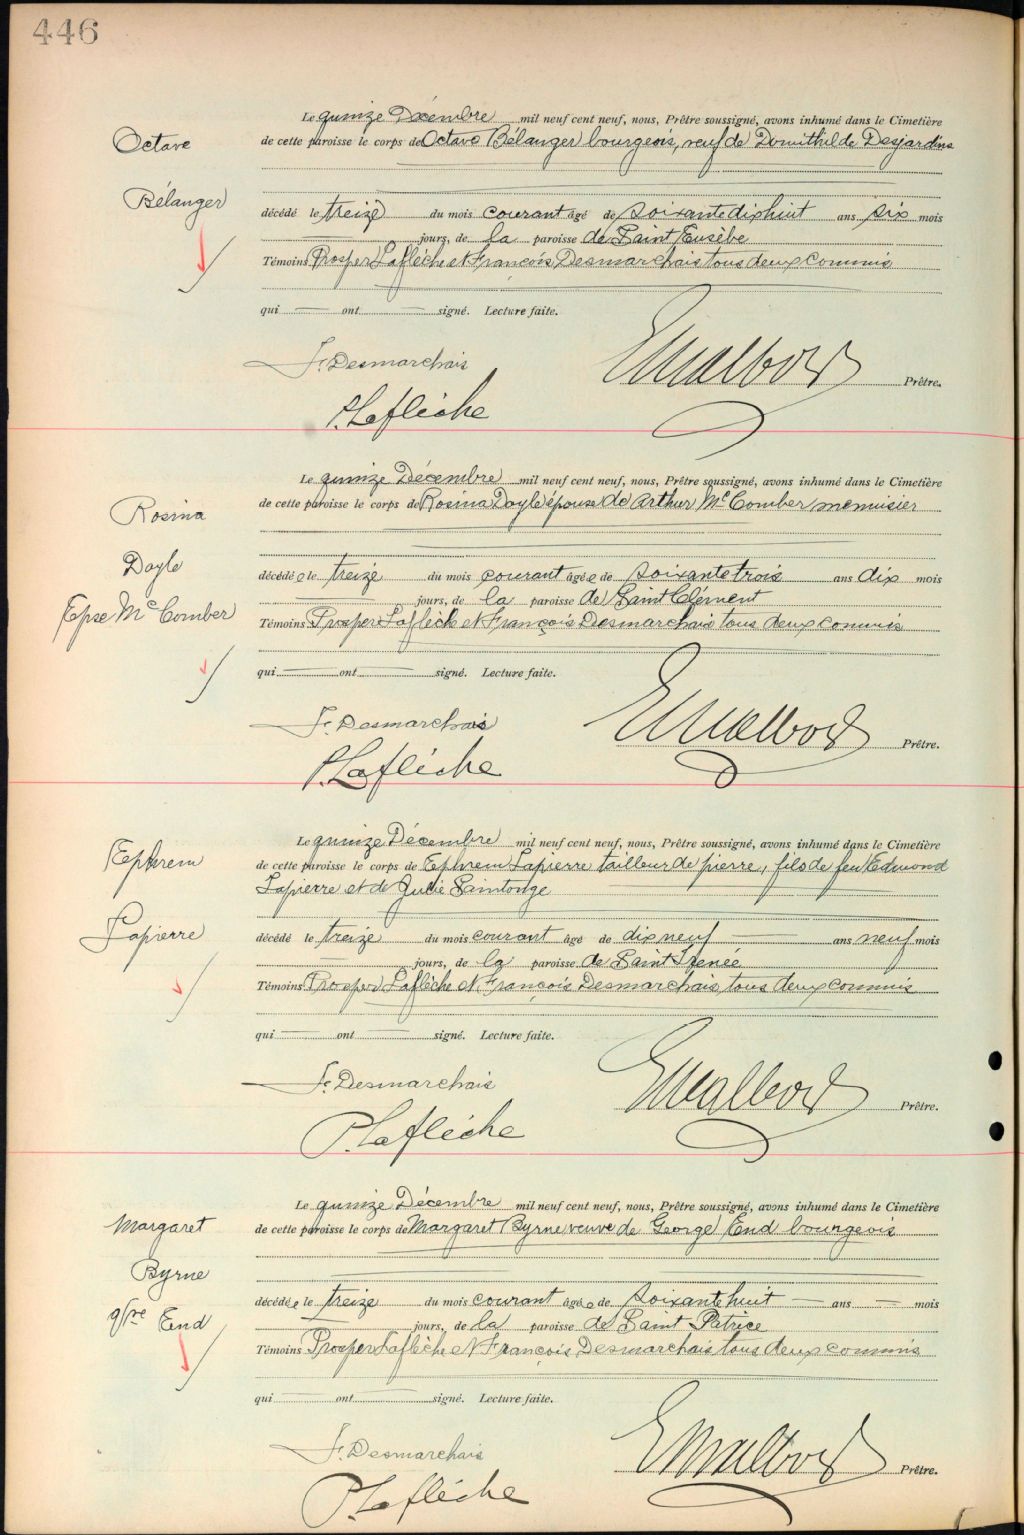 446
Le quinze Décembre mil neuf cent neuf, nous, Prêtre soussigné, avons inhumé dans le Cimetière
Octave
de cette paroisse le corps de Octave Bélanger bourgeois, veuf de Domithilde Desjardins
Bélanger
décédé le treize du mois courant âgé de soixante dix huit ans six mois
jours, de la paroisse de Saint Eusèbe
Témoins Prosper Laflèche et François Desmarchais tous deux commis
qui ont signé. Lecture faite.
F. Desmarchais
Prêtre.
P. Laflèche
Le quinze Décembre mil neuf cent neuf, nous, Prêtre soussigné, avons inhumé dans le Cimetière
Rosina
de cette paroisse le corps de Rosina Doyle épouse de Arthur Mc Comber menuisier
Doyle
décédée le treize du mois courant âgée de soixante trois ans dix mois
Epse Mc Comber
jours, de la paroisse de Saint Clément
Témoins Prosper Laflèche et François Desmarchais tous deux commis
qui ont signé. Lecture faite.
F. Desmarchais
Prêtre.
P. Laflèche
Le quinze Décembre mil neuf cent neuf, nous, Prêtre soussigné, avons inhumé dans le Cimetière
Ephrem
de cette paroisse le corps de Ephrem Lapierre tailleur de pierre, fils de feu Edmond
Lapierre et de Julie Saintonge
Lapierre
décédé le treize du mois courant âgé de dix neuf ans neuf mois
jours, de la paroisse de Saint Irenée
Témoins Prosper Laflèche et François Desmarchais tous deux commis
qui ont signé. Lecture faite.
F. Desmarchais
Prêtre.
P. Laflèche
Le quinze Décembre mil neuf cent neuf, nous, Prêtre soussigné, avons inhumé dans le Cimetière
Margaret
de cette paroisse le corps de Margaret Byrne veuve de George End bourgeois
Byrne
décédée le treize du mois courant âgée de soixante huit ans mois
End
jours, de la paroisse de Saint Patrice
Témoins Prosper Laflèche et François Desmarchais tous deux commis
qui ont signé. Lecture faite.
F. Desmarchais
Prêtre.
P. Laflèche